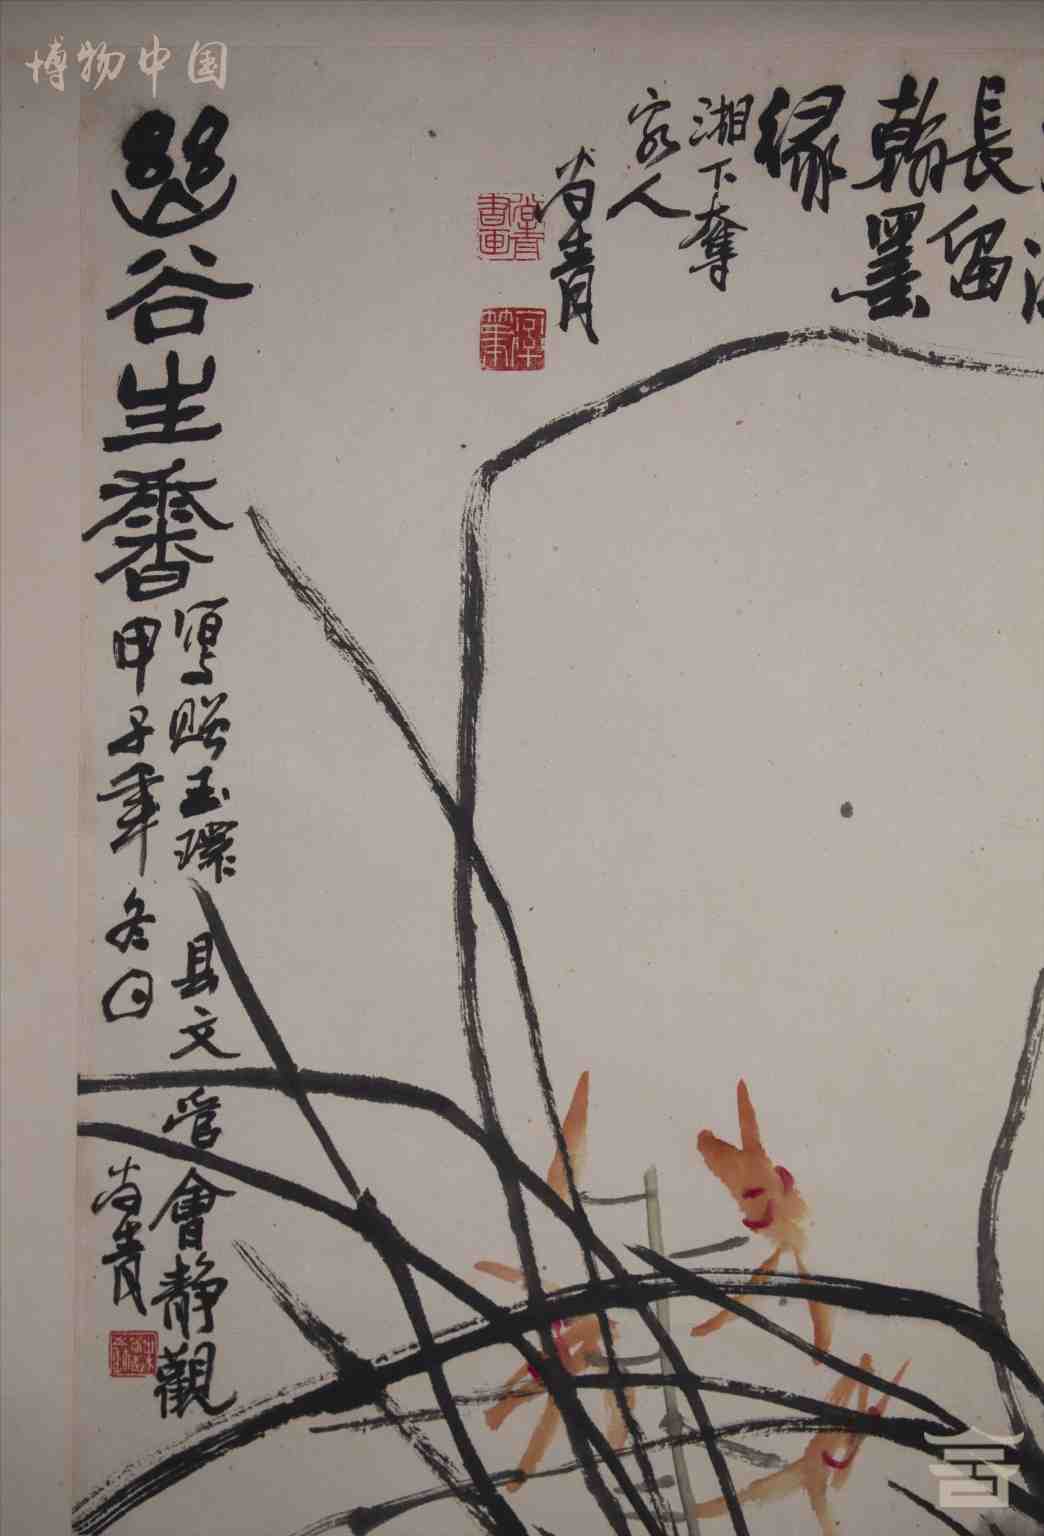 博物中国
長留
翰墨
缘
湘下奪
客人
尚青
幽谷生馨
写贈玉環县文管會静觀
甲子年冬日
尚青